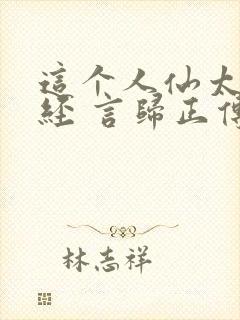 這个人仙太
經 言歸正傳
林志祥